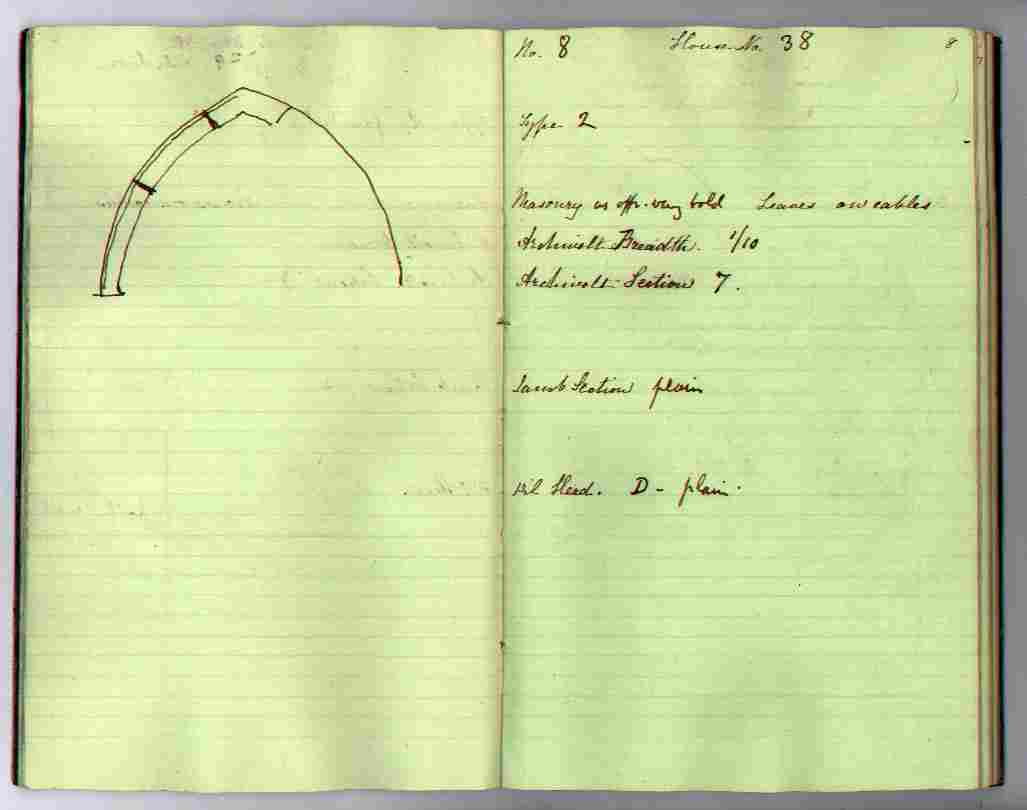 No. 8 House No. 38 8
Type 2
Masonry as opp. very bold Leaves on cables
Archivolt Breadth. 1/10
Archivolt Section 7.
Jamb Section plain
Pil Head. D - plain.